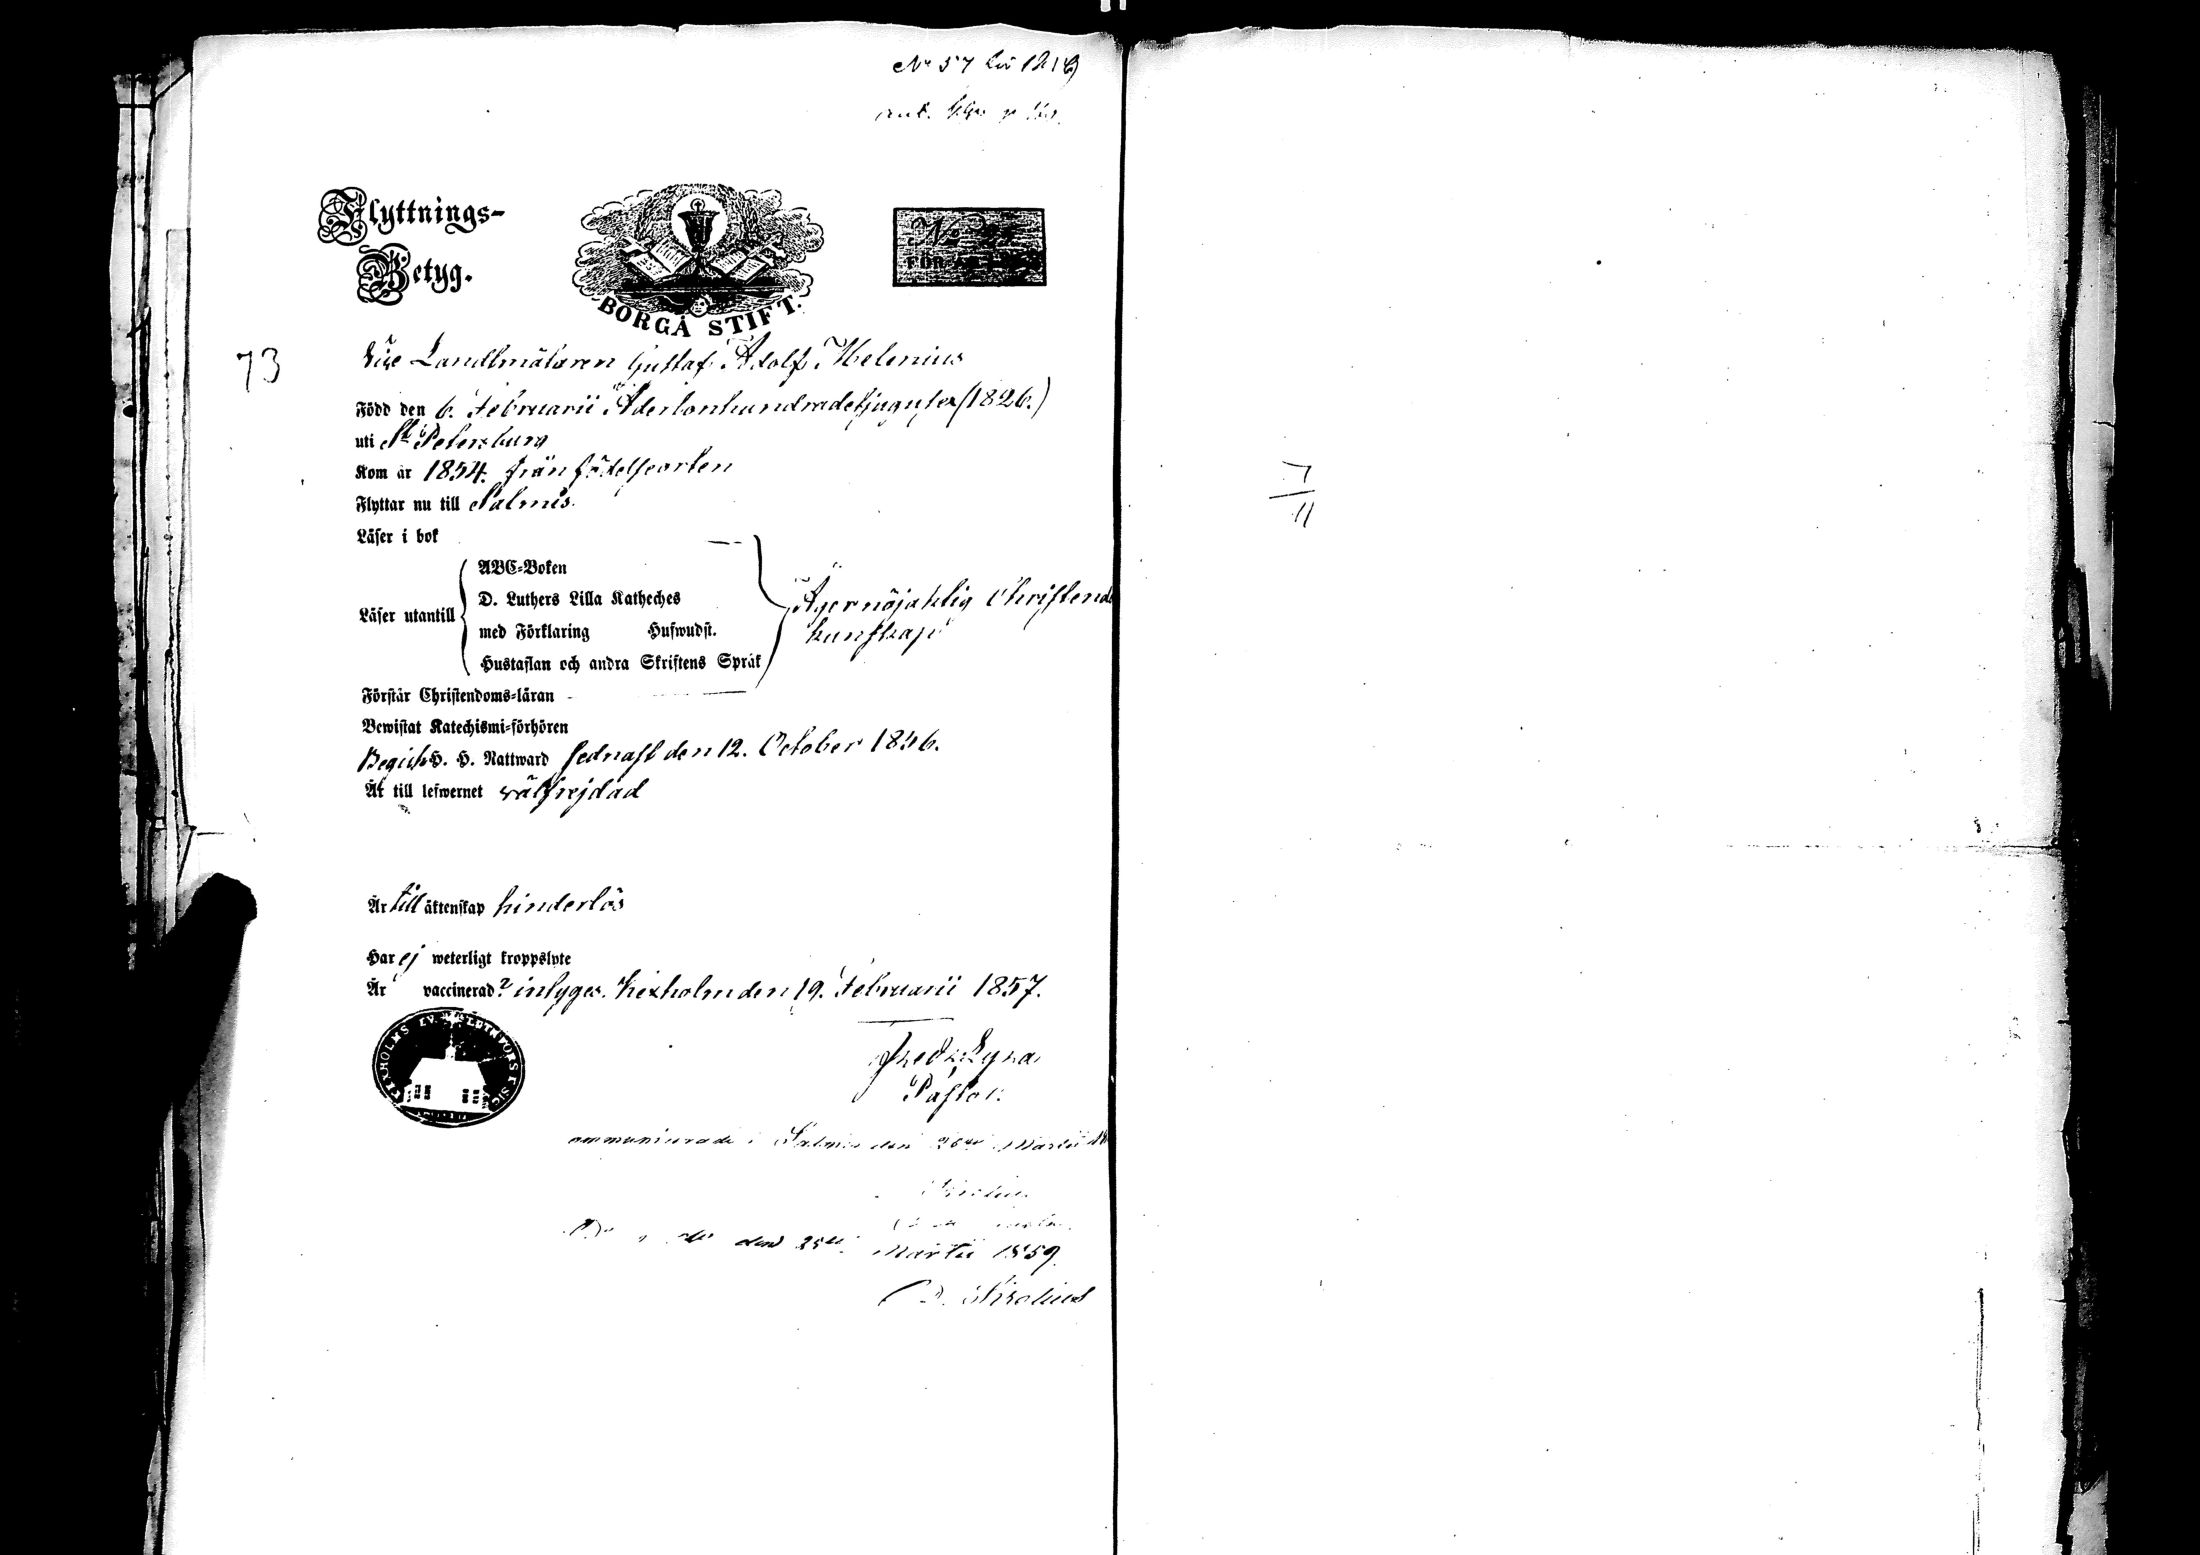 No 57
Flyttnings-
Betyg.
BORGÅ STIFT.
No
73
Vice Landtmätaren Gustaf Adolf Helenius
Född den 6. Februarii Adertonhundradetjugusex (1826.)
uti St Petersburg
Kom år 1854. från födelseorten
Flyttar nu till Salmis.
Läser i bok
ABC-Boken
D. Luthers Lilla Katheches
Läser utantill
med Förklaring Hufwudst.
Hustaflan och andra Skriftens Språk
Äger nöjaktig Christendoms
kunskap
Förstår Christendoms-läran
Bewistat Katechismi-förhören
Begått H. H. Nattward sednast den 12. October 1856.
Är till lefwernet wälfrejdad
Är till äktenskap hinderlös
Har ej weterligt kroppslyte
Är vaccinerad? intygar. Kexholm den 19. Februarii 1857.
KEXHOLMS EV.
Pastor.
i Salmis den 26de Martii
den 25de Martii 1859
Sirelius
7
11